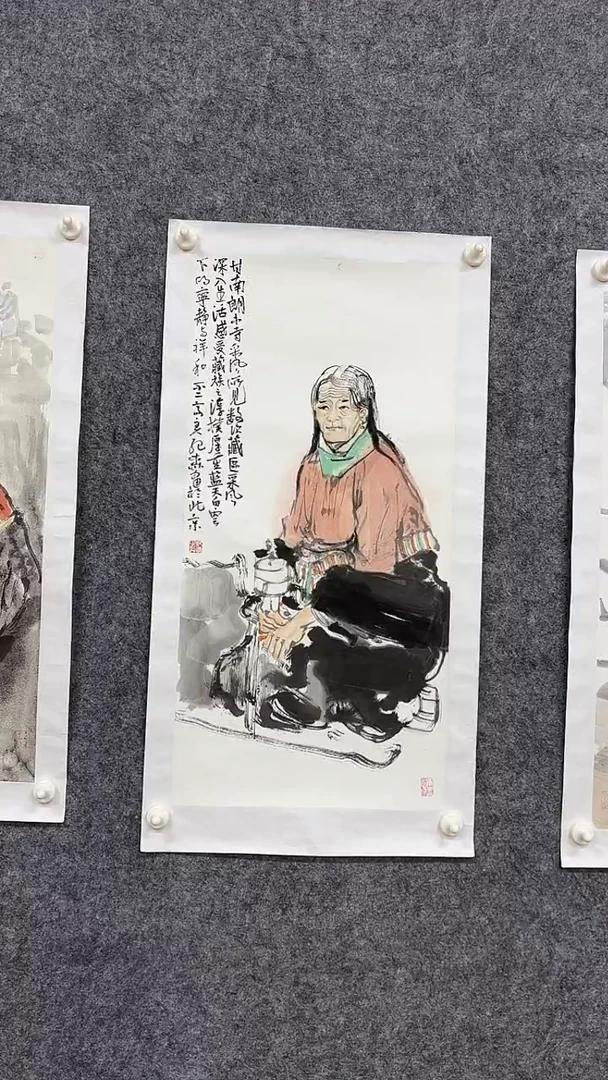 甘南朗木寺采风所见数次藏区采风
深入生活感受藏族之淳朴厚重蓝天白云
下的宁静与祥和
画于北京